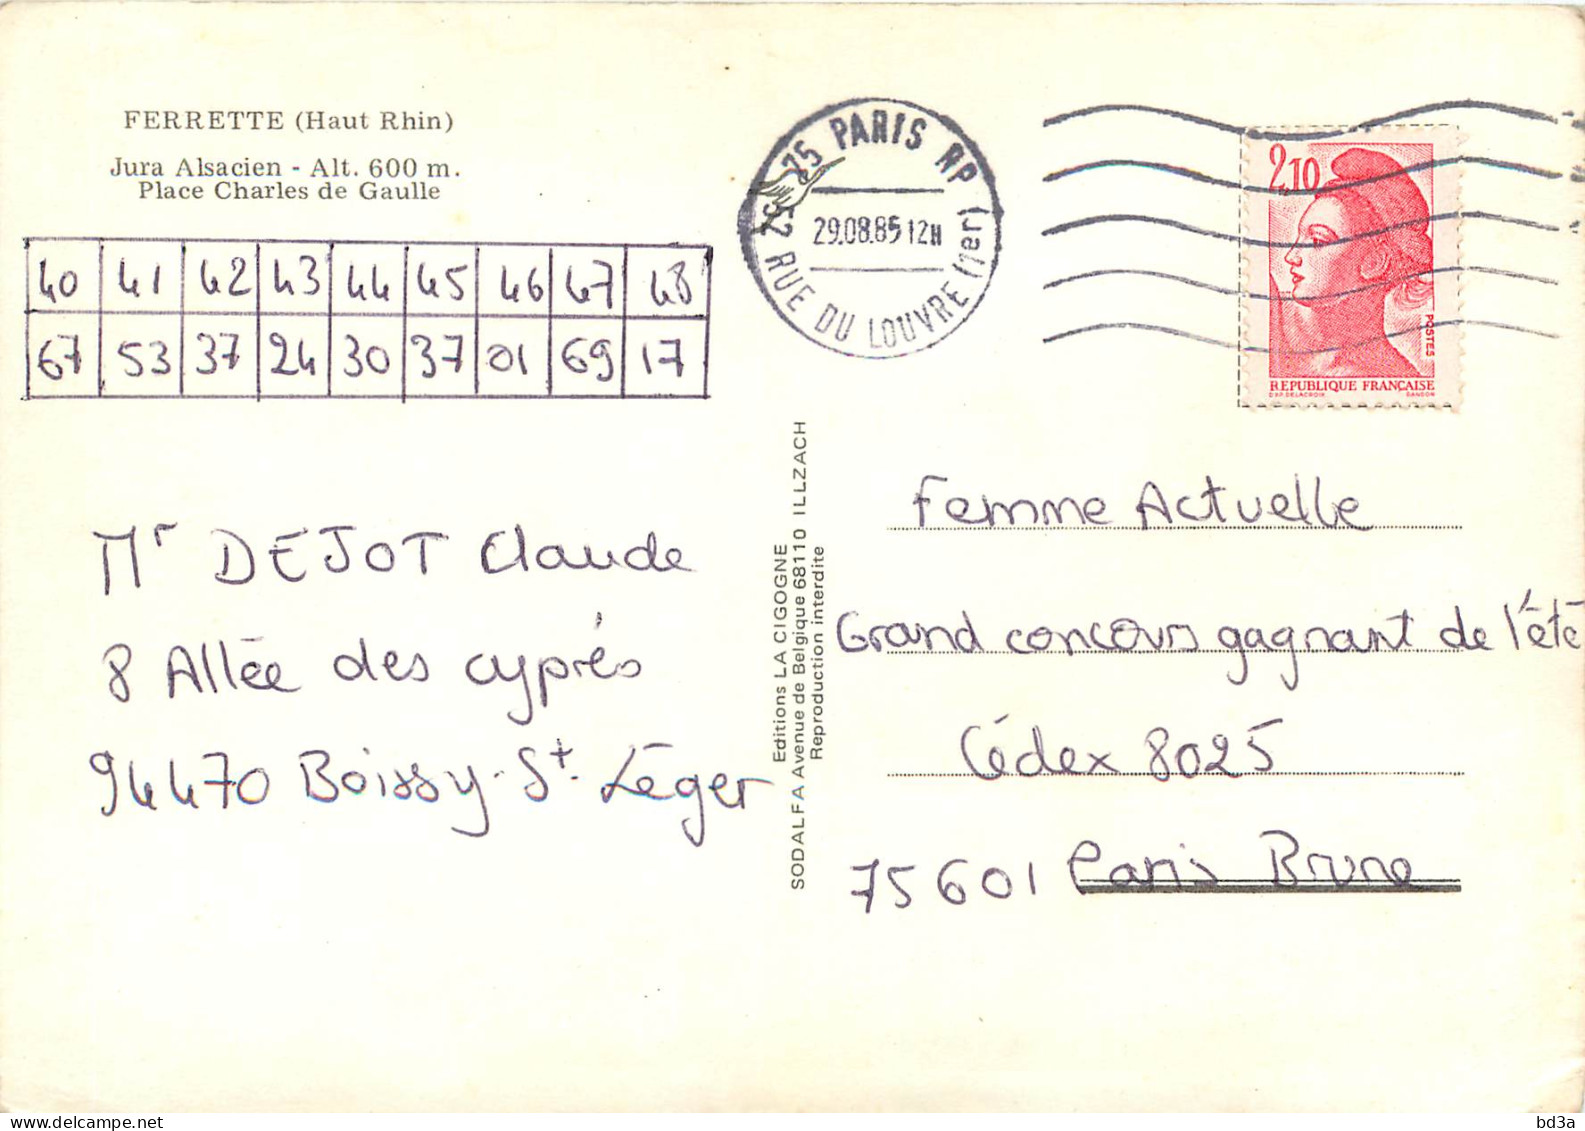 FERRETTE (Haut Rhin)
Jura Alsacien - Alt. 600 m.
Place Charles de Gaulle
40 41 42 43 44 45 46 47 48
67 53 37 24 30 37 01 69 17
Mr DEJOT Claude
8 Allée des cyprés
94470 Boissy-St. Léger
Editions LA CIGOGNE
SODALFA Avenue de Belgique 68110 ILLZACH
Reproduction interdite
75 PARIS RP (1er)
29.08.85 12H
52 RUE DU LOUVRE
2,10
POSTES
REPUBLIQUE FRANÇAISE
D'AP. DELACROIX GANDON
Femme Actuelle
Grand concours gagnant de l'été
Cédex 8025
75601 Paris Brune
bd3a